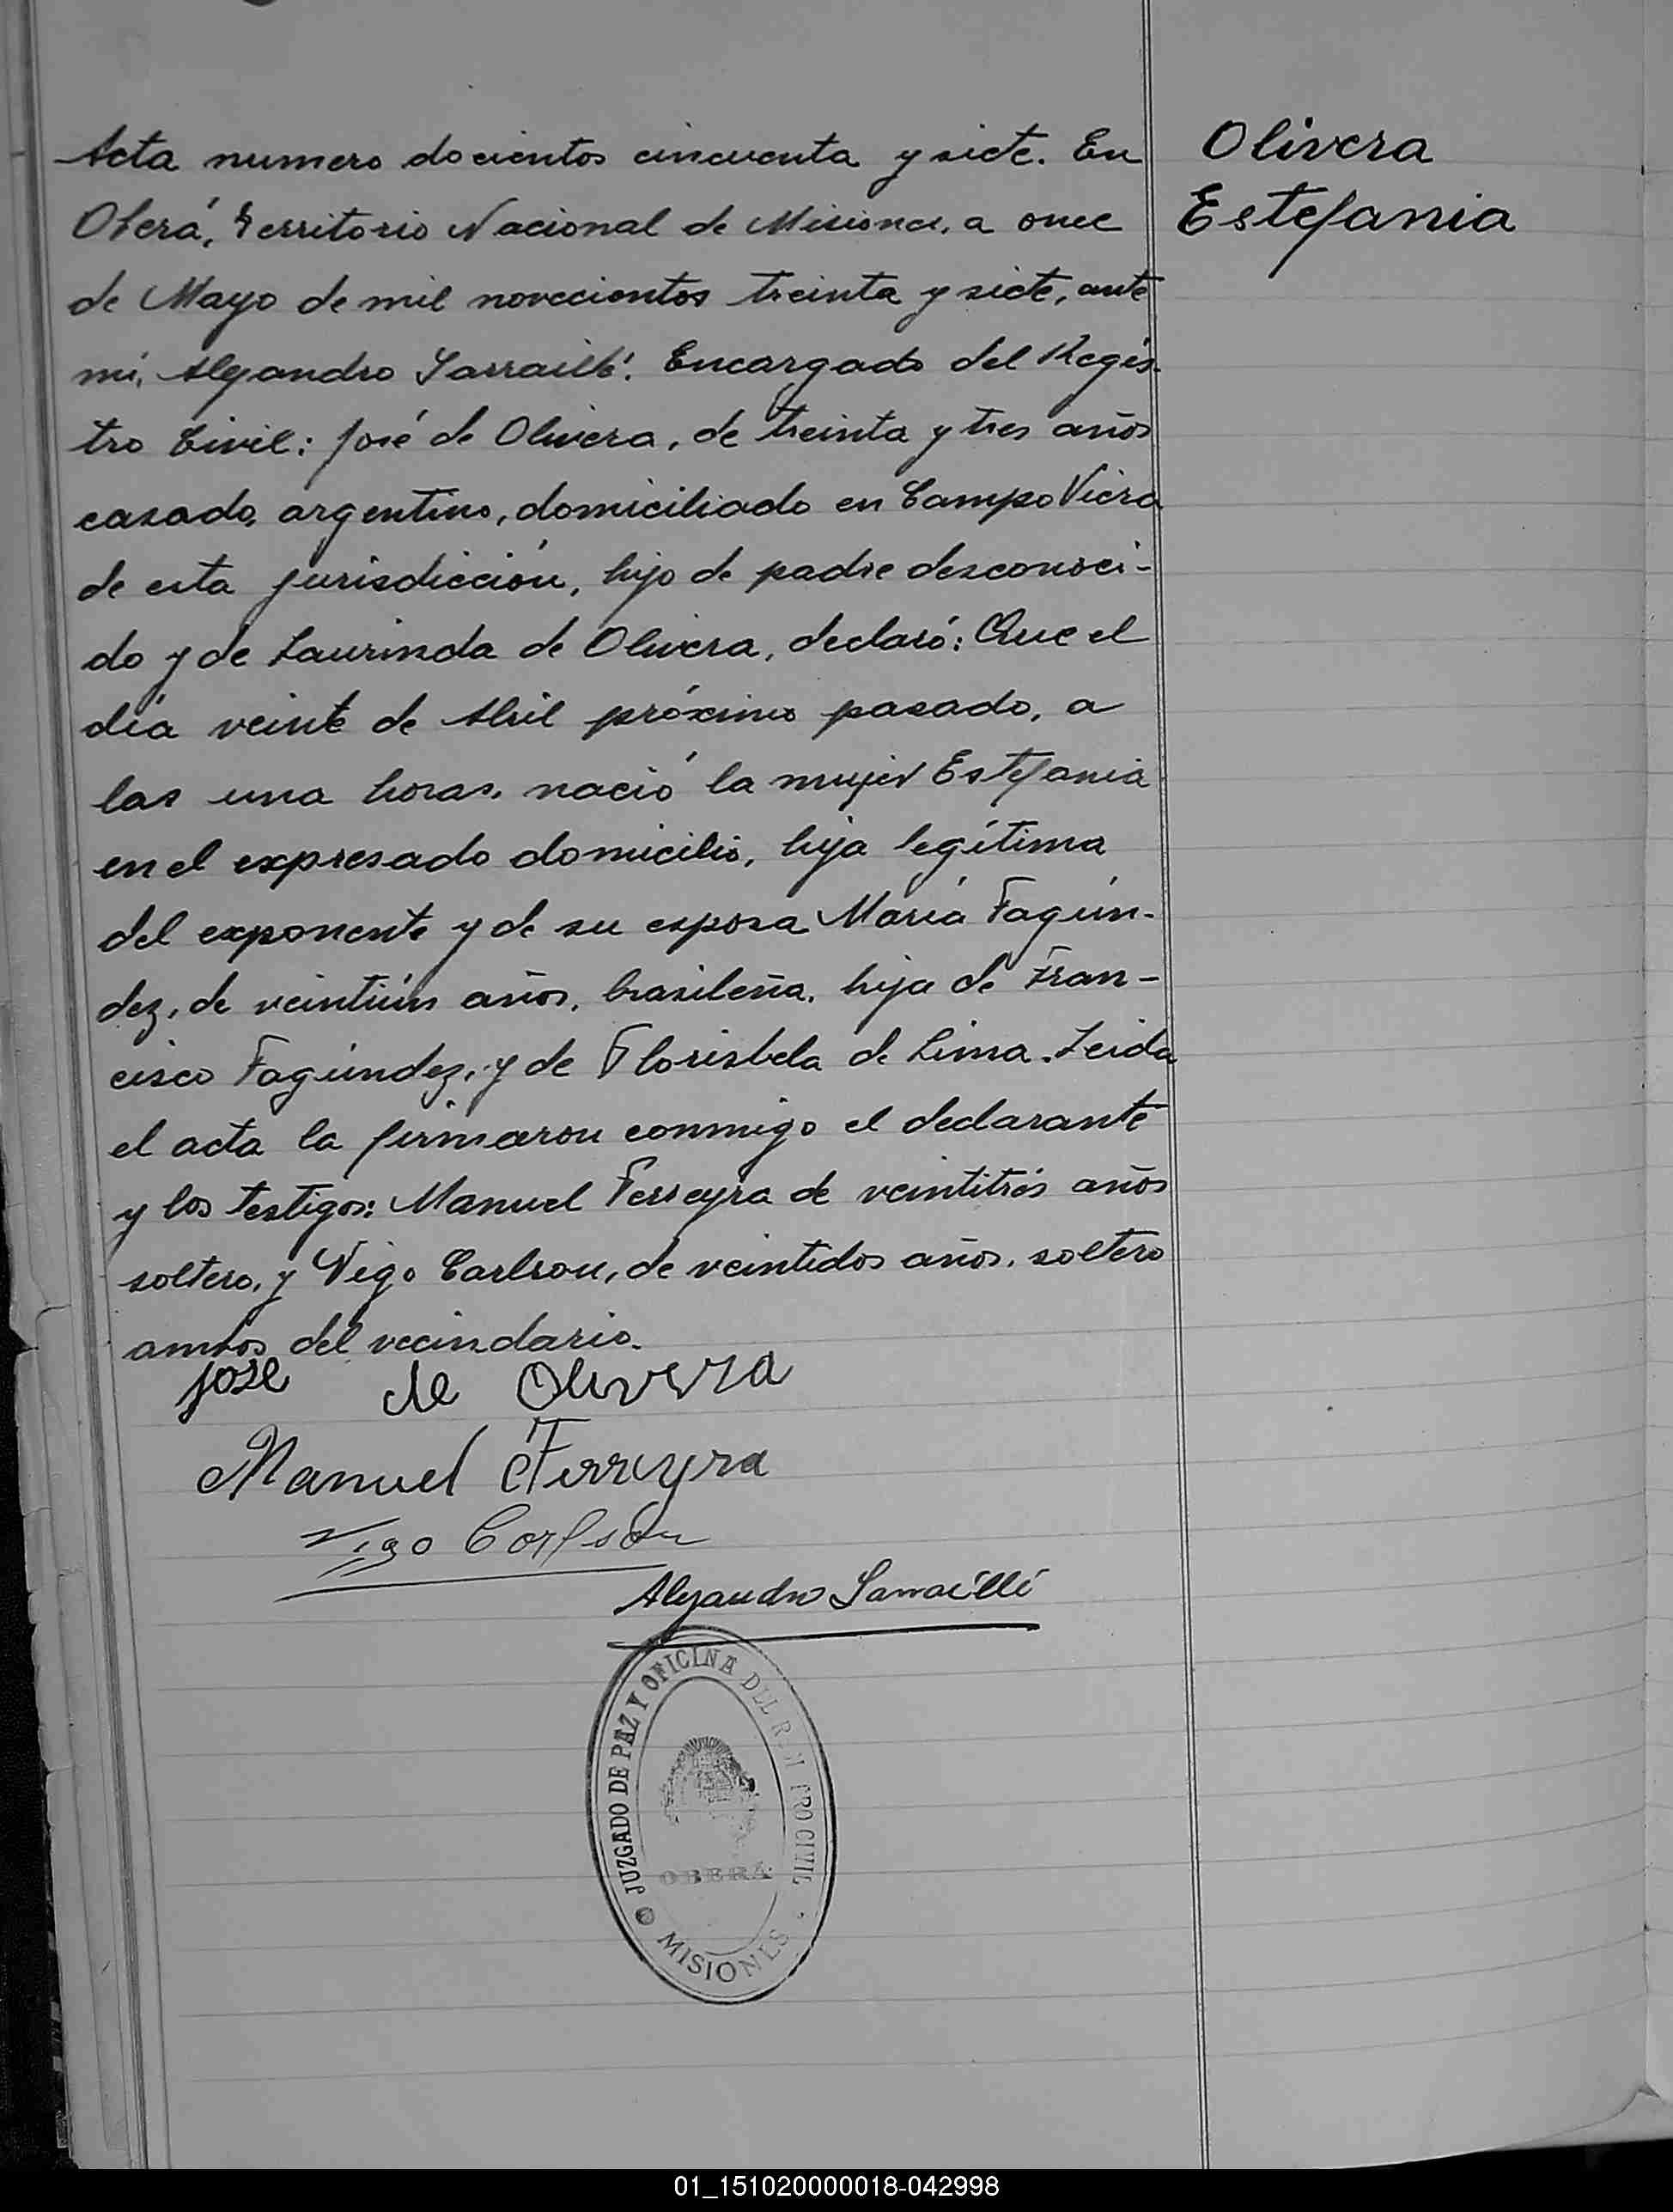 Acta numero docientos cincuenta y siete. En
Oberá, Territorio Nacional de Misiones, a once
de Mayo de mil novecientos treinta y siete, ante
mí, Alejandro Sarraillé. Encargado del Regis-
tro Civil: José de Olivera, de treinta y tres años
casado, argentino, domiciliado en Campo Viera
de esta jurisdicción, hijo de padre desconoci-
do y de Laurinda de Olivera, declaró: Que el
día veinte de Abril próximo pasado, a
las una horas, nació la mujer Estefania
en el expresado domicilio, hija legítima
del exponente y de su esposa María Fagún-
dez, de veintiún años, brasileña, hija de Fran-
cisco Fagúndez, y de Florisbela de Lima. Leida
el acta la firmaron conmigo el declarante
y los testigos: Manuel Ferreyra de veintitrés años
soltero, y Vigo Carlson, de veintidos años, soltero
ambos del vecindario.
José de Olivera
Manuel Ferreyra
Vigo Carlson
Alejandro Sarraillé
JUZGADO DE PAZ Y OFICINA DEL REGISTRO CIVIL
OBERÁ
MISIONES
Olivera
Estefania
01_151020000018-042998